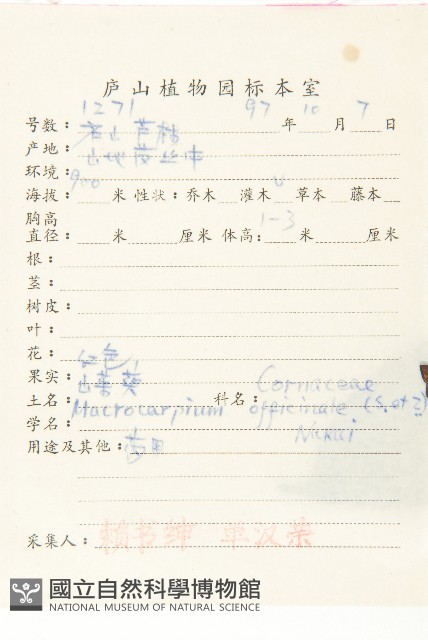 庐山植物园标本室
号数: 1271 97年 10月 7日
产地: 庐山
环境: 山地
海拔: 900米 性状: 乔木 灌木 √ 草本 藤本
胸高
直径: 米 厘米 体高: 1-3 米 厘米
根:
茎:
树皮:
叶:
花:
果实: 红色
土名: 山茱萸 科名: Cornaceae
学名: Macrocarpium officinale (S. et Z.) Nakai
用途及其他: 药用
采集人: 赖书绅 单汉荣
國立自然科學博物館
NATIONAL MUSEUM OF NATURAL SCIENCE